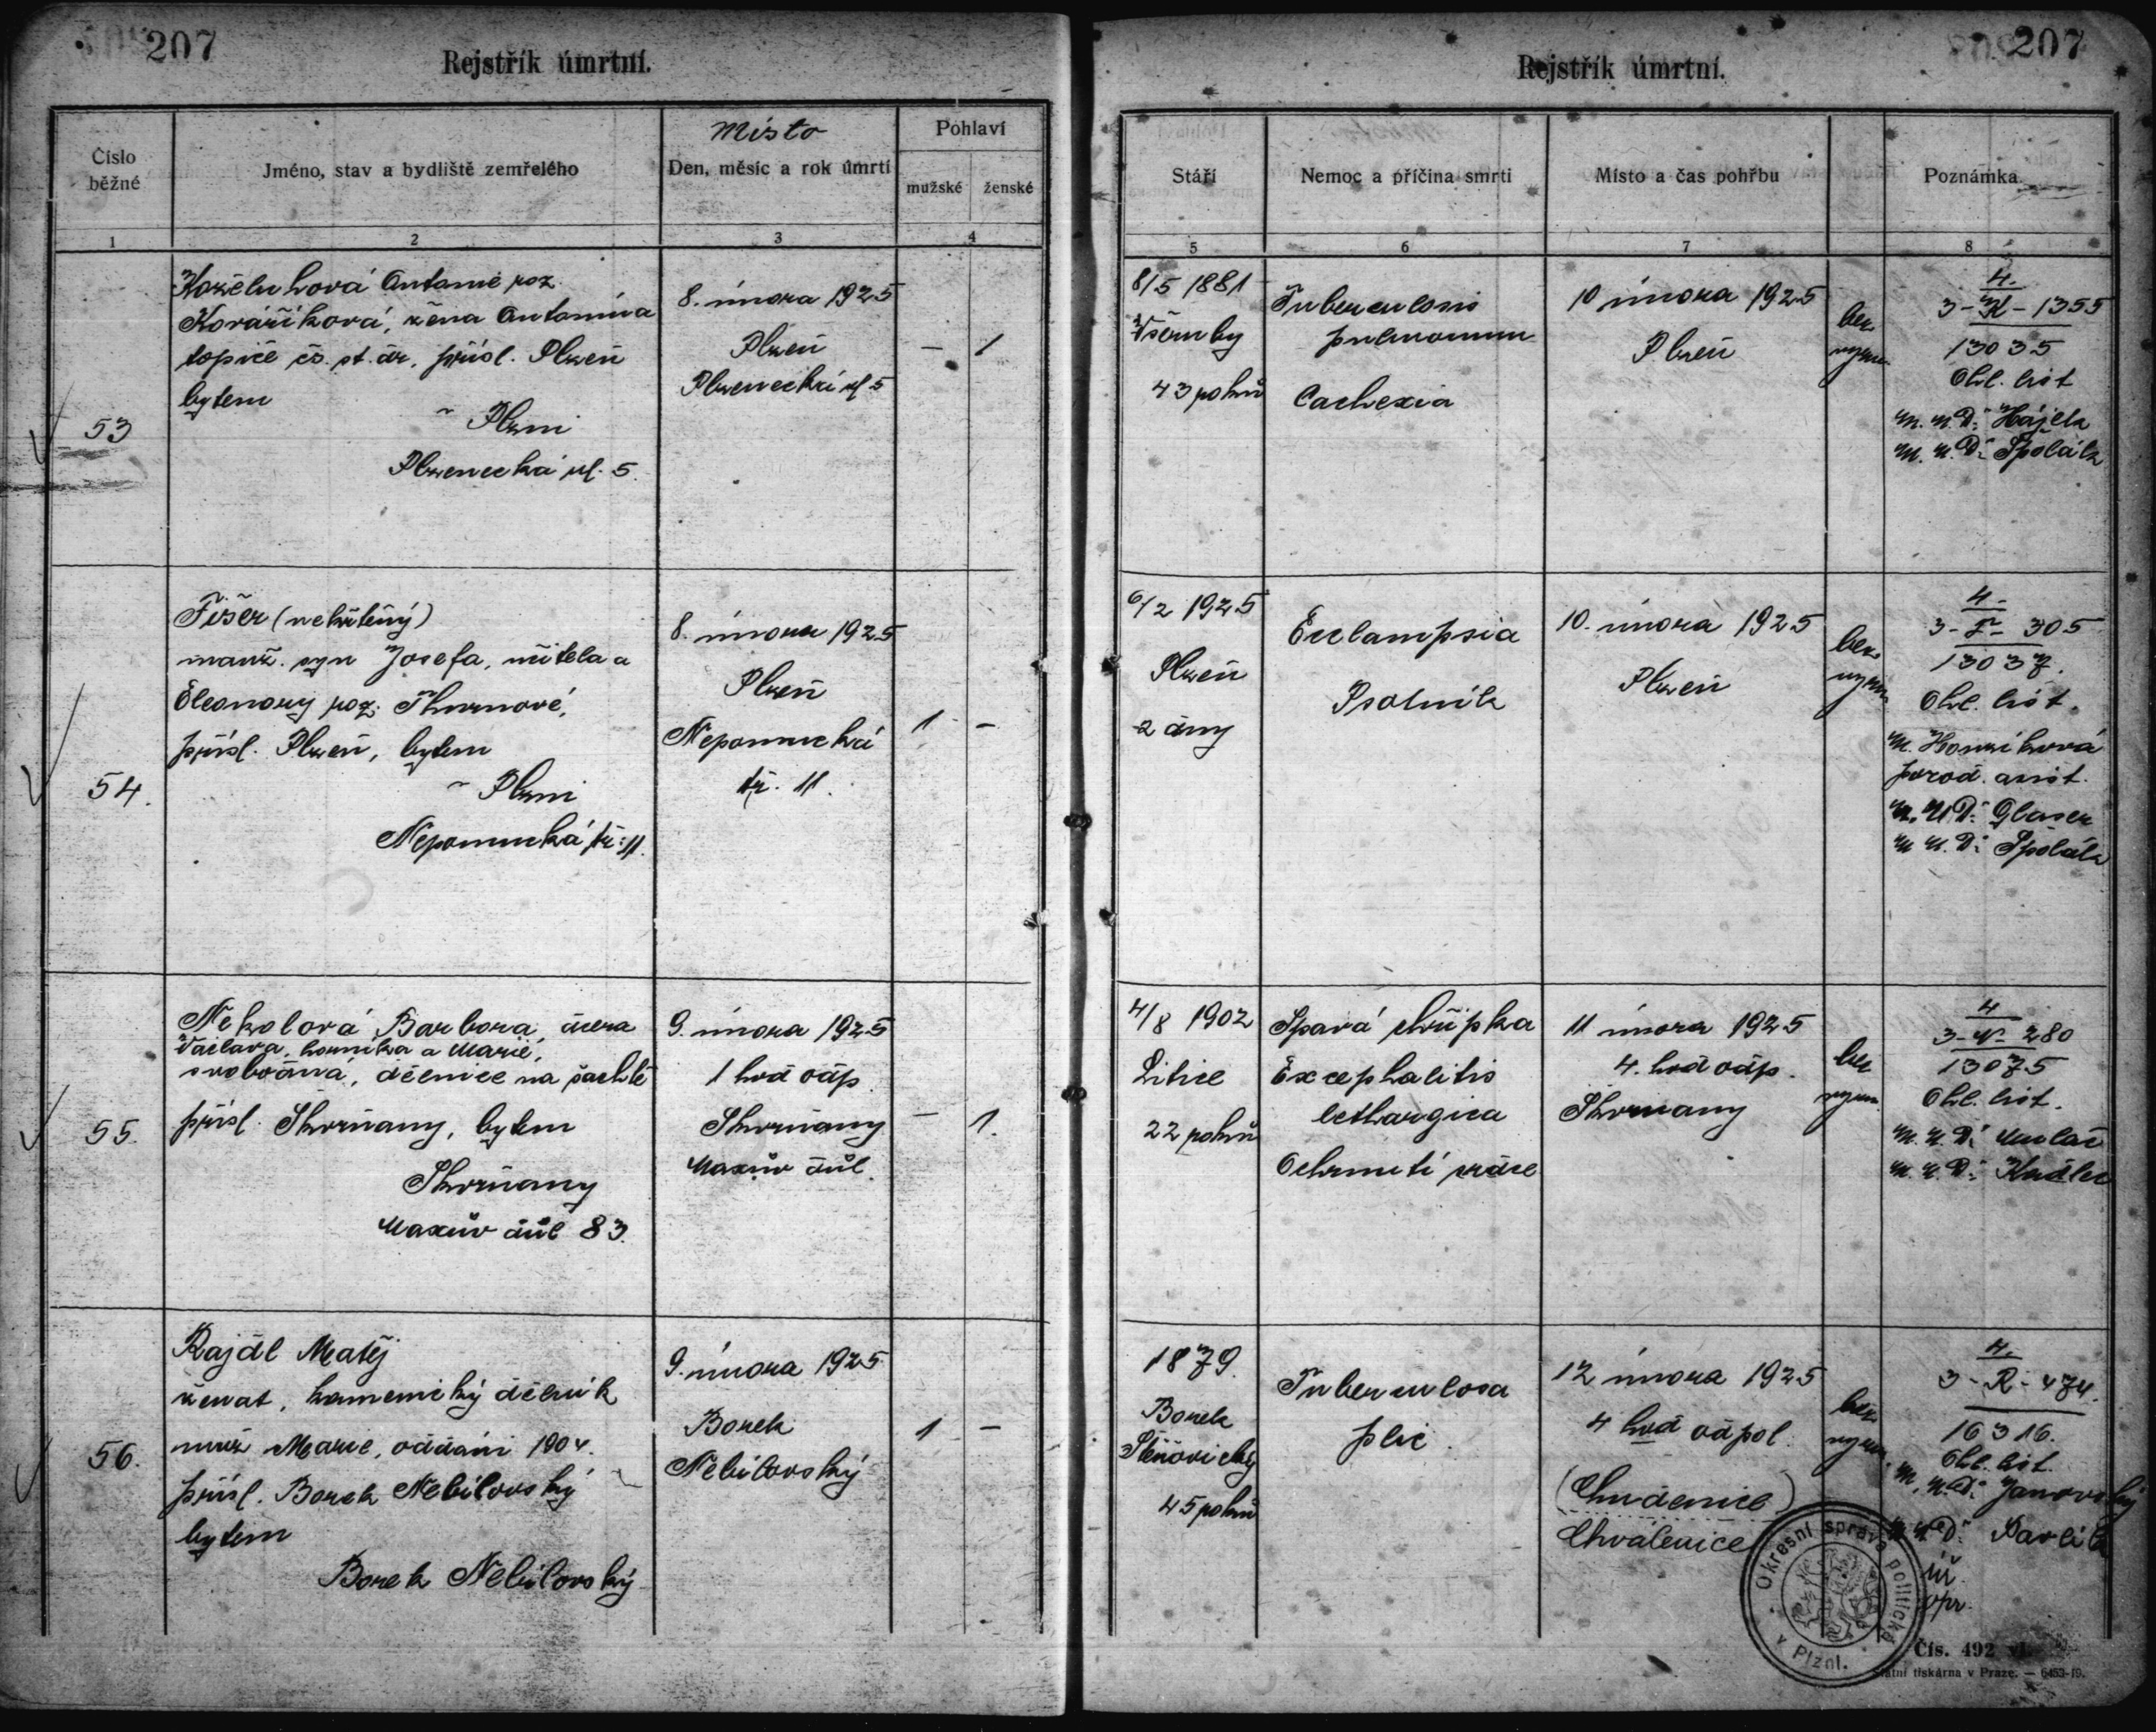 207
Rejstřík úmrtní.
Číslo běžné
Jméno, stav a bydliště zemřelého
Místo
Den, měsíc a rok úmrtí
Pohlaví
mužské
ženské
1
2
3
4
53
Koželuhová Antonie roz.
Kovaříková, žena Antonína
topiče čs. st. dr. přísl. Plzeň
bytem
v Plzni
Plzenecká ul. 5.
8. února 1925
Plzeň
Plzenecká ul 5
– 1
54.
Fišer (nekřtěný)
manž. syn Josefa, učitela a
Eleonory roz. Thurnové,
přísl. Plzeň, bytem
v Plzni
Nepomucká tř. 11.
8. února 1925
Plzeň
Nepomucká
tř. 11.
1 –
55.
Nekolová Barbora, dcera
Václava, horníka a Marie,
svobodná, dělnice na šachtě
přísl. Skvrňany, bytem
Skvrňany
Maxův důl 83.
9. února 1925
1 hod odp.
Skvrňany
Maxův důl.
– 1.
56.
Rajdl Matěj
ženat, kamenický dělník
muž Marie, oddáni 1904.
přísl. Borek Nebílovský
bytem
Borek Nebílovský
9. února 1925
Borek
Nebílovský
1 –
207
Rejstřík úmrtní.
Stáří
Nemoc a příčina smrti
Místo a čas pohřbu
Poznámka
5
6
7
8
8/5 1881
Všeruby
43 roků
Tuberculosis
pulmonum
Cachexia
10 února 1925
Plzeň
bez
vyzn.
4.
3-K-1355
13035
Ohl. list
M.U.Dr. Hájek
M.U.Dr. Špolák
6/2 1925
Plzeň
2 dny
Eclampsia
Psotník
10. února 1925
Plzeň
bez
vyzn
4.
3-F-305
13037.
Ohl. list.
M. Honzíková
porod. asist.
M.U.Dr. Glaser
M.U.Dr. Špolák
4/8 1902
Litice
22 roků
Spavá chřipka
Excephalitis
lethargica
Ochrnutí srdce
11 února 1925
4. hod odp.
Skvrňany
bez
vyzn.
4
3-N-280
13075
Ohl. list.
M.U.Dr.
M.U.Dr. Kudlec
1879.
Borek
Štěnovický
45 roků
Tuberculosa
plic.
12 února 1925
4 hod odpol.
(Chudenice)
Chválenice
bez
vyzn.
4.
3-R-474.
16316.
Ohl. list.
M.U.Dr. Janovský
M.U.Dr. Pavlík
úř.
opr.
Okresní správa politická v Plzni.
Čís. 492
Státní tiskárna v Praze. — 6453-19.